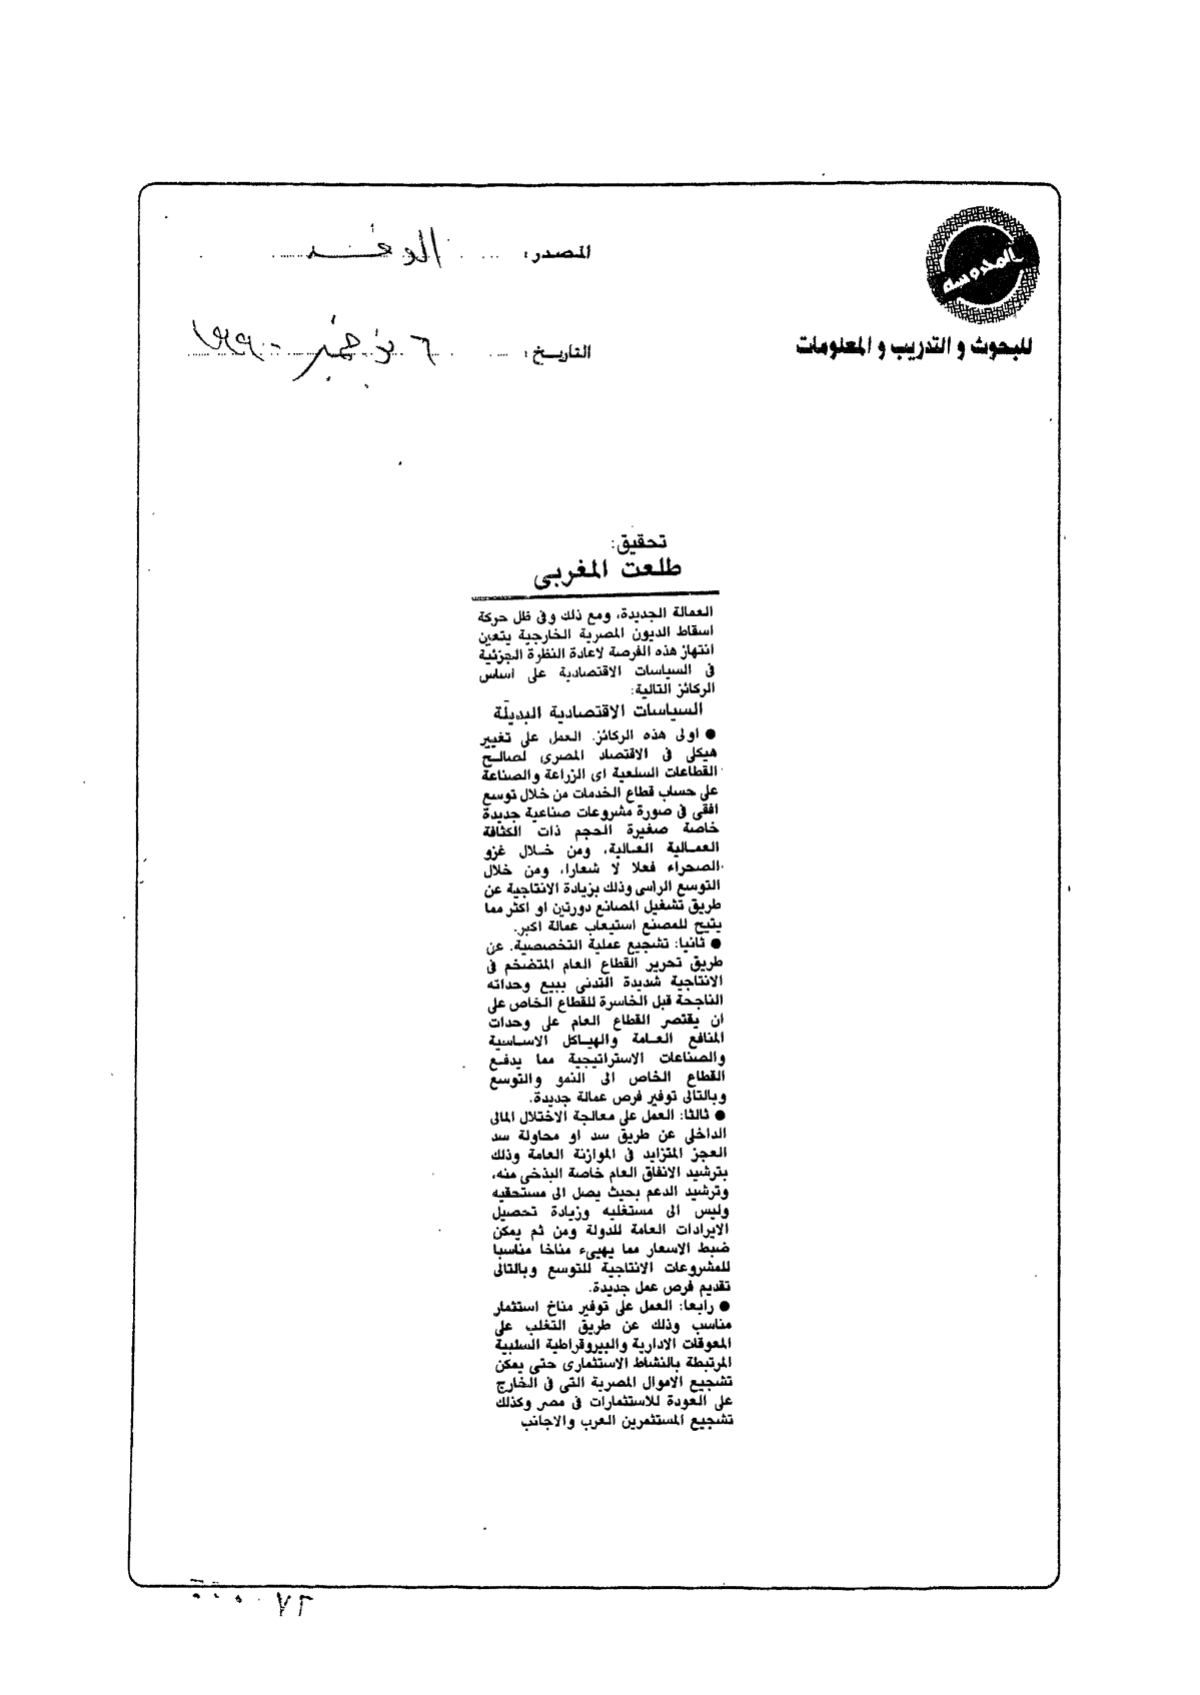 المحروسة
للبحوث و التدريب و المعلومات
المصدر: الوفد
التاريخ: ٦ نوفمبر ١٩٩٠
تحقيق:
طلعت المغربى
العمالة الجديدة، ومع ذلك وفى ظل حركة
اسقاط الديون المصرية الخارجية يتعين
انتهاز هذه الفرصة لاعادة النظرة الجزئية
فى السياسات الاقتصادية على اساس
الركائز التالية:
السياسات الاقتصادية البديلة
● اولى هذه الركائز. العمل على تغيير
هيكلى فى الاقتصاد المصرى لصالح
القطاعات السلعية اى الزراعة والصناعة
على حساب قطاع الخدمات من خلال توسع
افقى فى صورة مشروعات صناعية جديدة
خاصة صغيرة الحجم ذات الكثافة
العمالية العالية، ومن خلال غزو
الصحراء فعلا لا شعارا، ومن خلال
التوسع الراسى وذلك بزيادة الانتاجية عن
طريق تشغيل المصانع دورتين او اكثر مما
يتيح للمصنع استيعاب عمالة اكبر.
● ثانيا: تشجيع عملية التخصصية. عن
طريق تحرير القطاع العام المتضخم فى
الانتاجية شديدة التدنى ببيع وحداته
الناجحة قبل الخاسرة للقطاع الخاص على
ان يقتصر القطاع العام على وحدات
المنافع العامة والهياكل الاساسية
والصناعات الاستراتيجية مما يدفع
القطاع الخاص الى النمو والتوسع
وبالتالى توفير فرص عمالة جديدة.
● ثالثا: العمل على معالجة الاختلال المالى
الداخلى عن طريق سد او محاولة سد
العجز المتزايد فى الموازنة العامة وذلك
بترشيد الانفاق العام خاصة البذخى منه،
وترشيد الدعم بحيث يصل الى مستحقيه
وليس الى مستغليه وزيادة تحصيل
الايرادات العامة للدولة ومن ثم يمكن
ضبط الاسعار مما يهيىء مناخا مناسبا
للمشروعات الانتاجية للتوسع وبالتالى
تقديم فرص عمل جديدة.
● رابعا: العمل على توفير مناخ استثمار
مناسب وذلك عن طريق التغلب على
المعوقات الادارية والبيروقراطية السلبية
المرتبطة بالنشاط الاستثمارى حتى يمكن
تشجيع الاموال المصرية التى فى الخارج
على العودة للاستثمارات فى مصر وكذلك
تشجيع المستثمرين العرب والاجانب